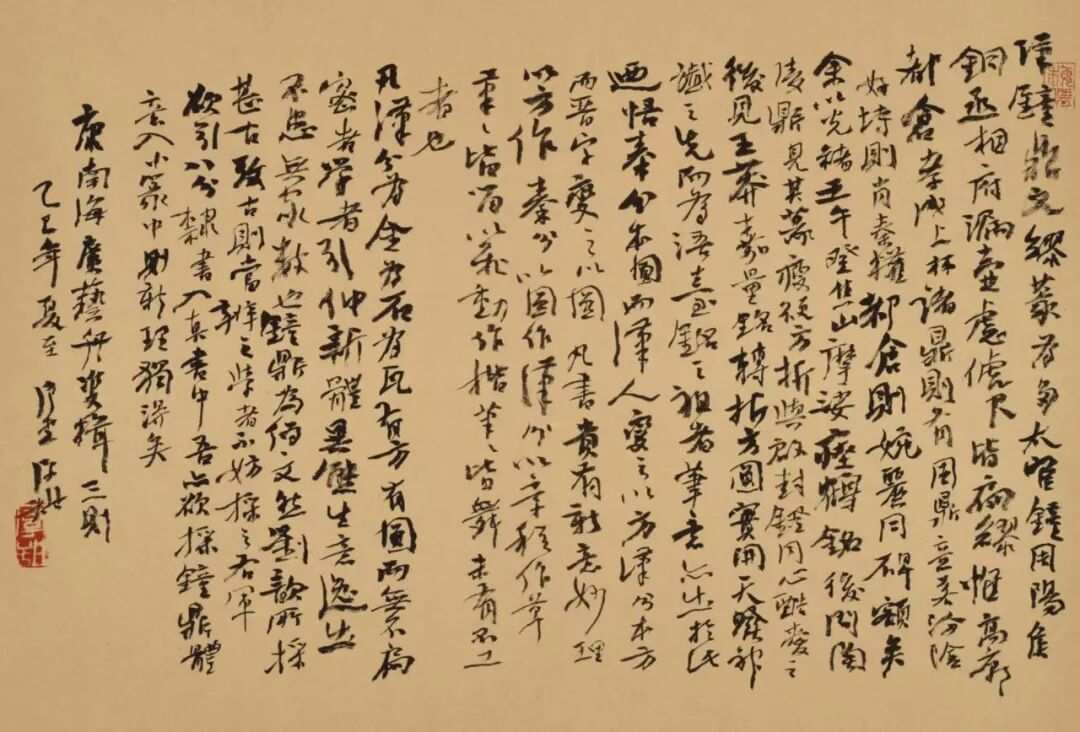 漢鐘鼎文繆篆為多太官鐘周陽侯
銅丞相府漏壺慮俿尺皆扁繆惟高廟
都倉孝成上林諸鼎則有周鼎意若汾陰
好畤則肖秦權都倉則婉麗同碑額矣
余以光緒壬午登焦山摩挲瘞鶴銘後問陶
陵鼎見其篆瘦硬方折與啟封鐙同心酷愛之
後見王莽嘉量銘轉折方圓實開天發神
讖之先而為浯臺銘之祖者筆意亦出於此
迺悟秦分本圓而漢人變之以方漢分本方
而晋字變之以圓凡書貴有新意妙理
以方作秦分以圓作漢分以章程作草
筆筆皆留以飛動作楷筆筆皆舞未有不工
者也
凡漢分為金為石為瓦有方有圓而無不扁
密者學者引伸新體異態生意逸出
不患無家數也鐘鼎為偽文然劉歆所採
甚古考古則當辨之學者不妨採之右軍
欲引八分隸書入真書中吾亦欲採鐘鼎體
意入小篆中則新理獨得矣
康南海廣藝舟雙楫三則
乙巳年夏至